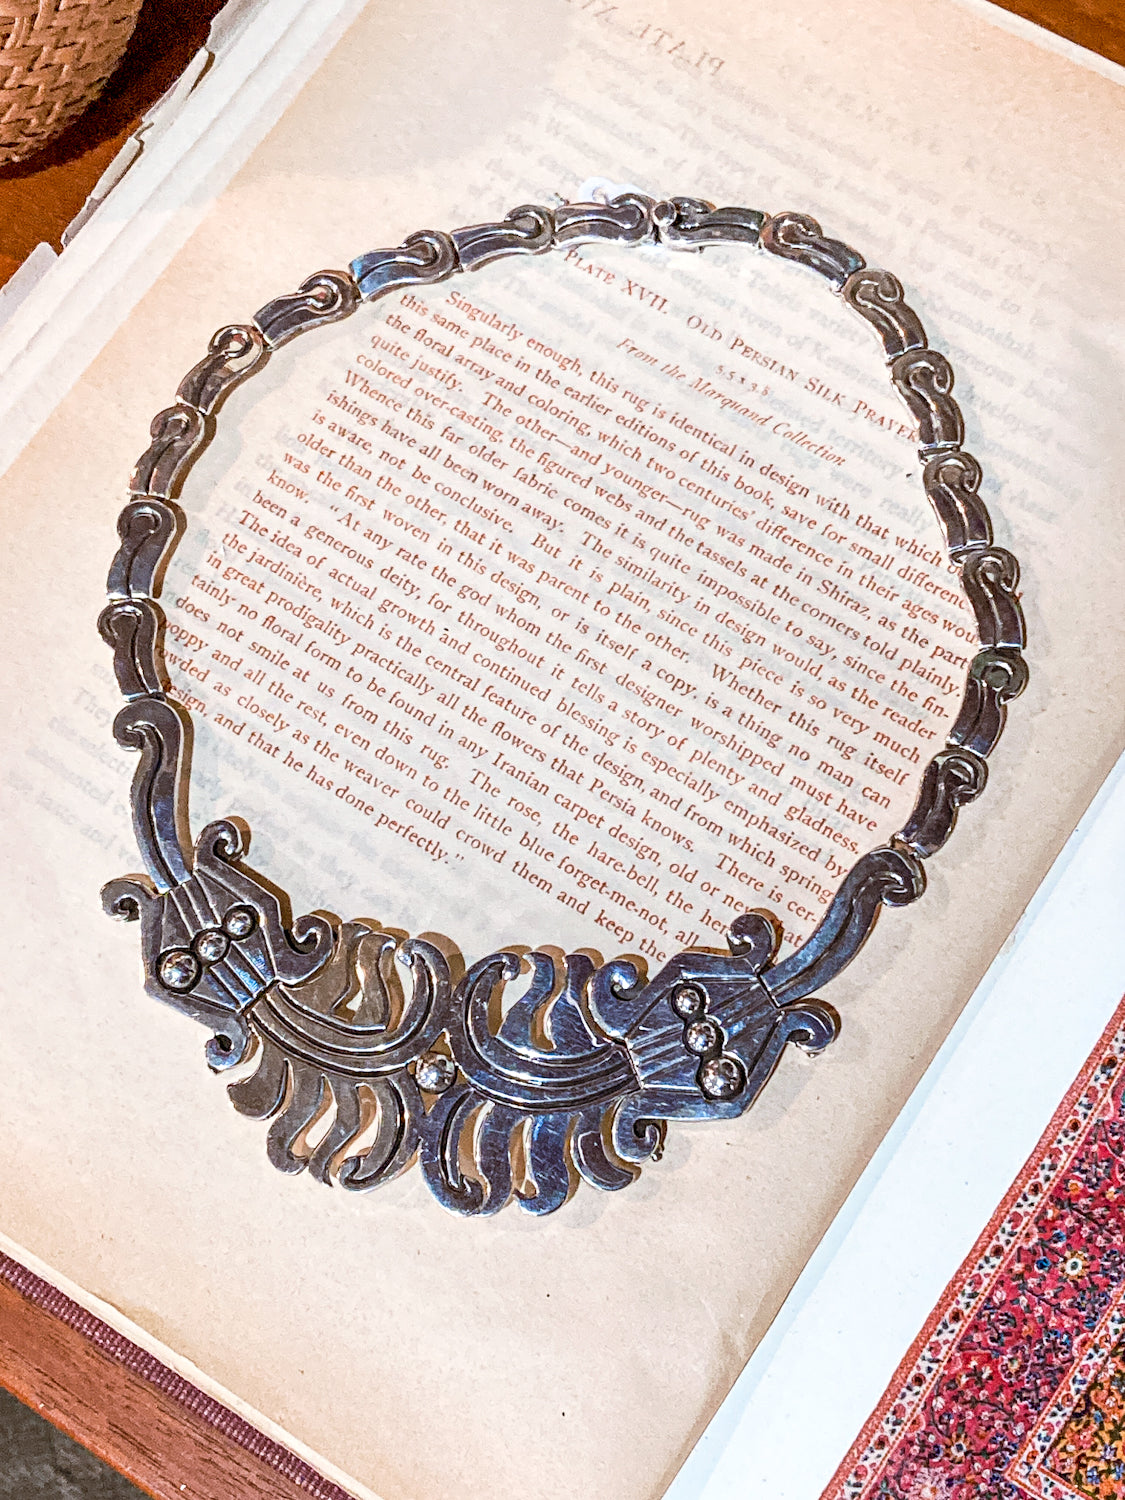 PLATE XVII. OLD PERSIAN SILK PRAYER
5.5 x 3.8
From the Marquand Collection
Singularly enough, this rug is identical in design with that which
this same place in the earlier editions of this book, save for small differenc
the floral array and coloring, which two centuries' difference in their ages wou
quite justify. The other—and younger—rug was made in Shiraz, as the part
colored over-casting, the figured webs and the tassels at the corners told plainly.
Whence this far older fabric comes it is quite impossible to say, since the fin-
ishings have all been worn away. The similarity in design would, as the reader
is aware, not be conclusive. But it is plain, since this piece is so very much
older than the other, that it was parent to the other. Whether this rug itself
was the first woven in this design, or is itself a copy, is a thing no man can
know. "At any rate the god whom the first designer worshipped must have
been a generous deity, for throughout it tells a story of plenty and gladness.
The idea of actual growth and continued blessing is especially emphasized by
the jardinière, which is the central feature of the design, and from which spring
in great prodigality practically all the flowers that Persia knows. There is cer-
tainly no floral form to be found in any Iranian carpet design, old or new, that
does not smile at us from this rug. The rose, the hare-bell, the her
oppy and all the rest, even down to the little blue forget-me-not, all
wded as closely as the weaver could crowd them and keep the
esign, and that he has done perfectly."